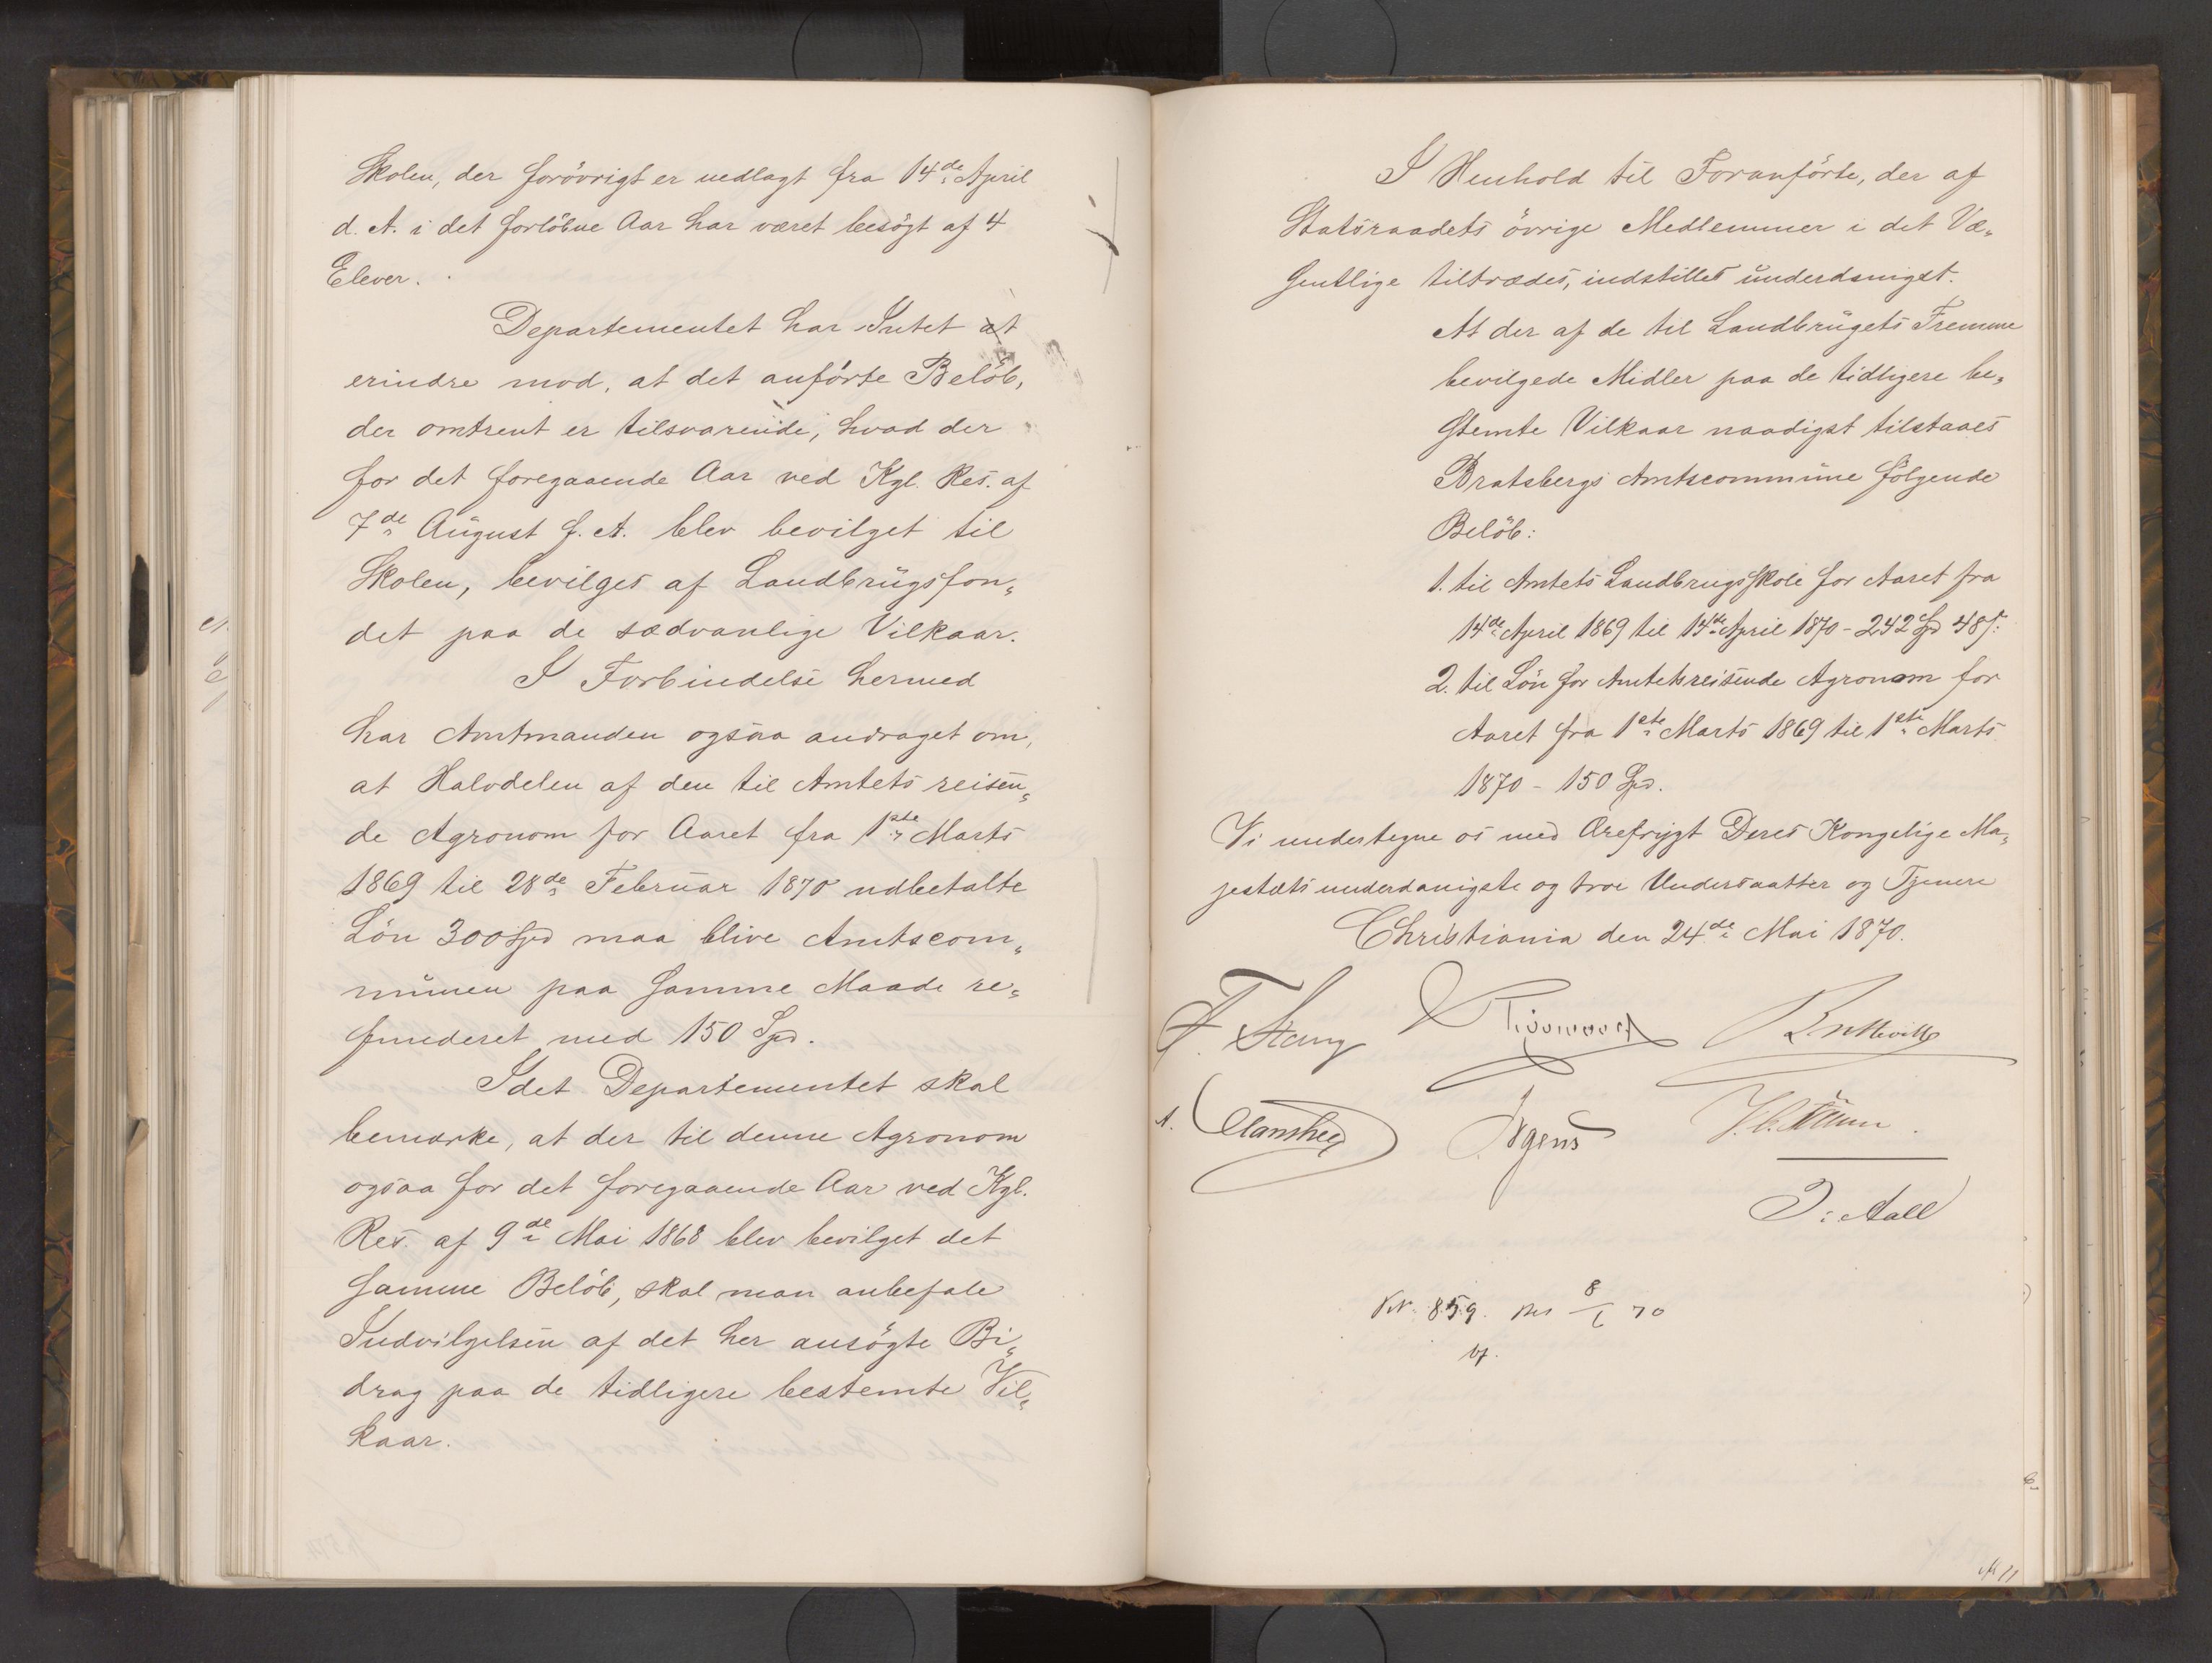 Skolen, der forövrigt er nedlagt fra 14de April
d. A. i det forlöbne Aar har været besögt af 4
Elever.
Departementet har Intet at
erindre mod, at det anförte Belöb,
der omtrent er tilsvarende, hvad der
for det foregaaende Aar ved Kgl. Res. af
7de August f. A. blev bevilget til
Skolen, bevilges af Landbrugsfon-
det paa de sædvanlige Vilkaar.
I Forbindelse hermed
har Amtmanden ogsaa andraget om,
at Halvdelen af den til Amtets reisen-
de Agronom for Aaret fra 1ste Marts
1869 til 28de Februar 1870 udbetalte
Lön 300 Spd maa blive Amtscom-
munen paa samme Maade re-
funderet med 150 Spd.
Idet Departementet skal
bemærke, at der til denne Agronom
ogsaa for det foregaaende Aar ved Kgl.
Res. af 9de Mai 1868 blev bevilget det
samme Belöb, skal man anbefale
Indvilgelsen af det her ansögte Bi-
drag paa de tidligere bestemte Vil-
kaar.
I Henhold til Foranförte, der af
Statsraadets övrige Medlemmer i det Væ-
sentlige tiltrædes, indstilles underdanigst:
At der af de til Landbrugets Fremme
bevilgede Midler paa de tidligere be-
stemte Vilkaar naadigst tilstaaes
Bratsbergs Amtscommune fölgende
Belöb:
1. til Amtets Landbrugsskole for Aaret fra
14de April 1869 til 14de April 1870 - 242 Spd 48 s.
2. til Lön for Amtets reisende Agronom for
Aaret fra 1ste Marts 1869 til 1ste Marts
1870 - 150 Spd.
Vi undertegne os med Ærefrygt Deres Kongelige Ma-
jestæts underdanigste og troe Undersaatter og Tjenere
Christiania den 24de Mai 1870.
F. Stang
Riddervold
Bretteville
Manthey
Irgens
J. Aall
859. 8/6 70